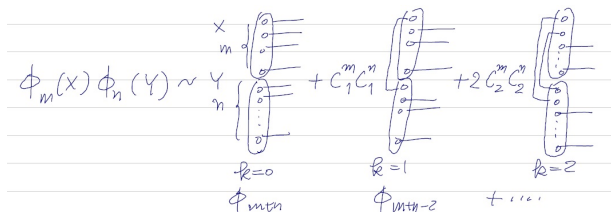 X
m
ϕm(X) ϕn(Y) ~ Y + C₁ᵐC₁ⁿ + 2C₂ᵐC₂ⁿ
n
k=0 k=1 k=2
ϕm+n ϕm+n-2 + ....